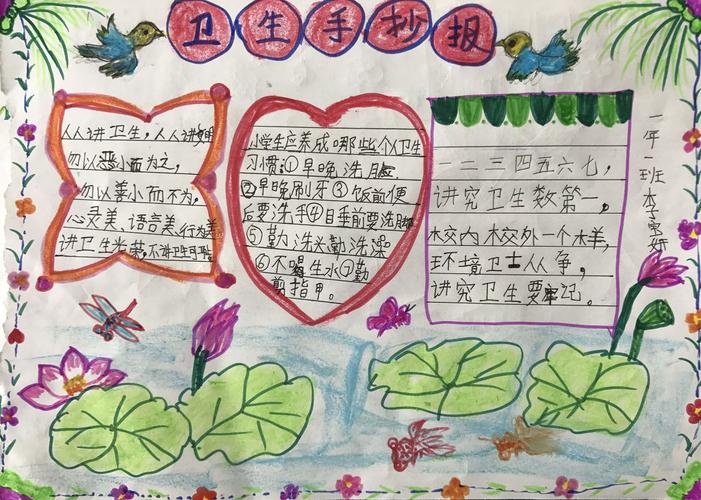 卫生手抄报
人人讲卫生,人人讲文明
勿以恶小而为之,
勿以善小而不为,
心灵美、语言美、行为美
讲卫生光荣,不讲卫生可耻
小学生应养成哪些个人卫生
习惯:①早晚洗脸
②早晚刷牙③饭前便
后要洗手④目垂前要洗脚
⑤勤洗头勤洗澡
⑥不喝生水⑦勤
剪指甲。
一二三四五六七,
讲究卫生数第一,
校内校外一个样,
环境卫士人人争,
讲究卫生要牢记。
一年一班 李